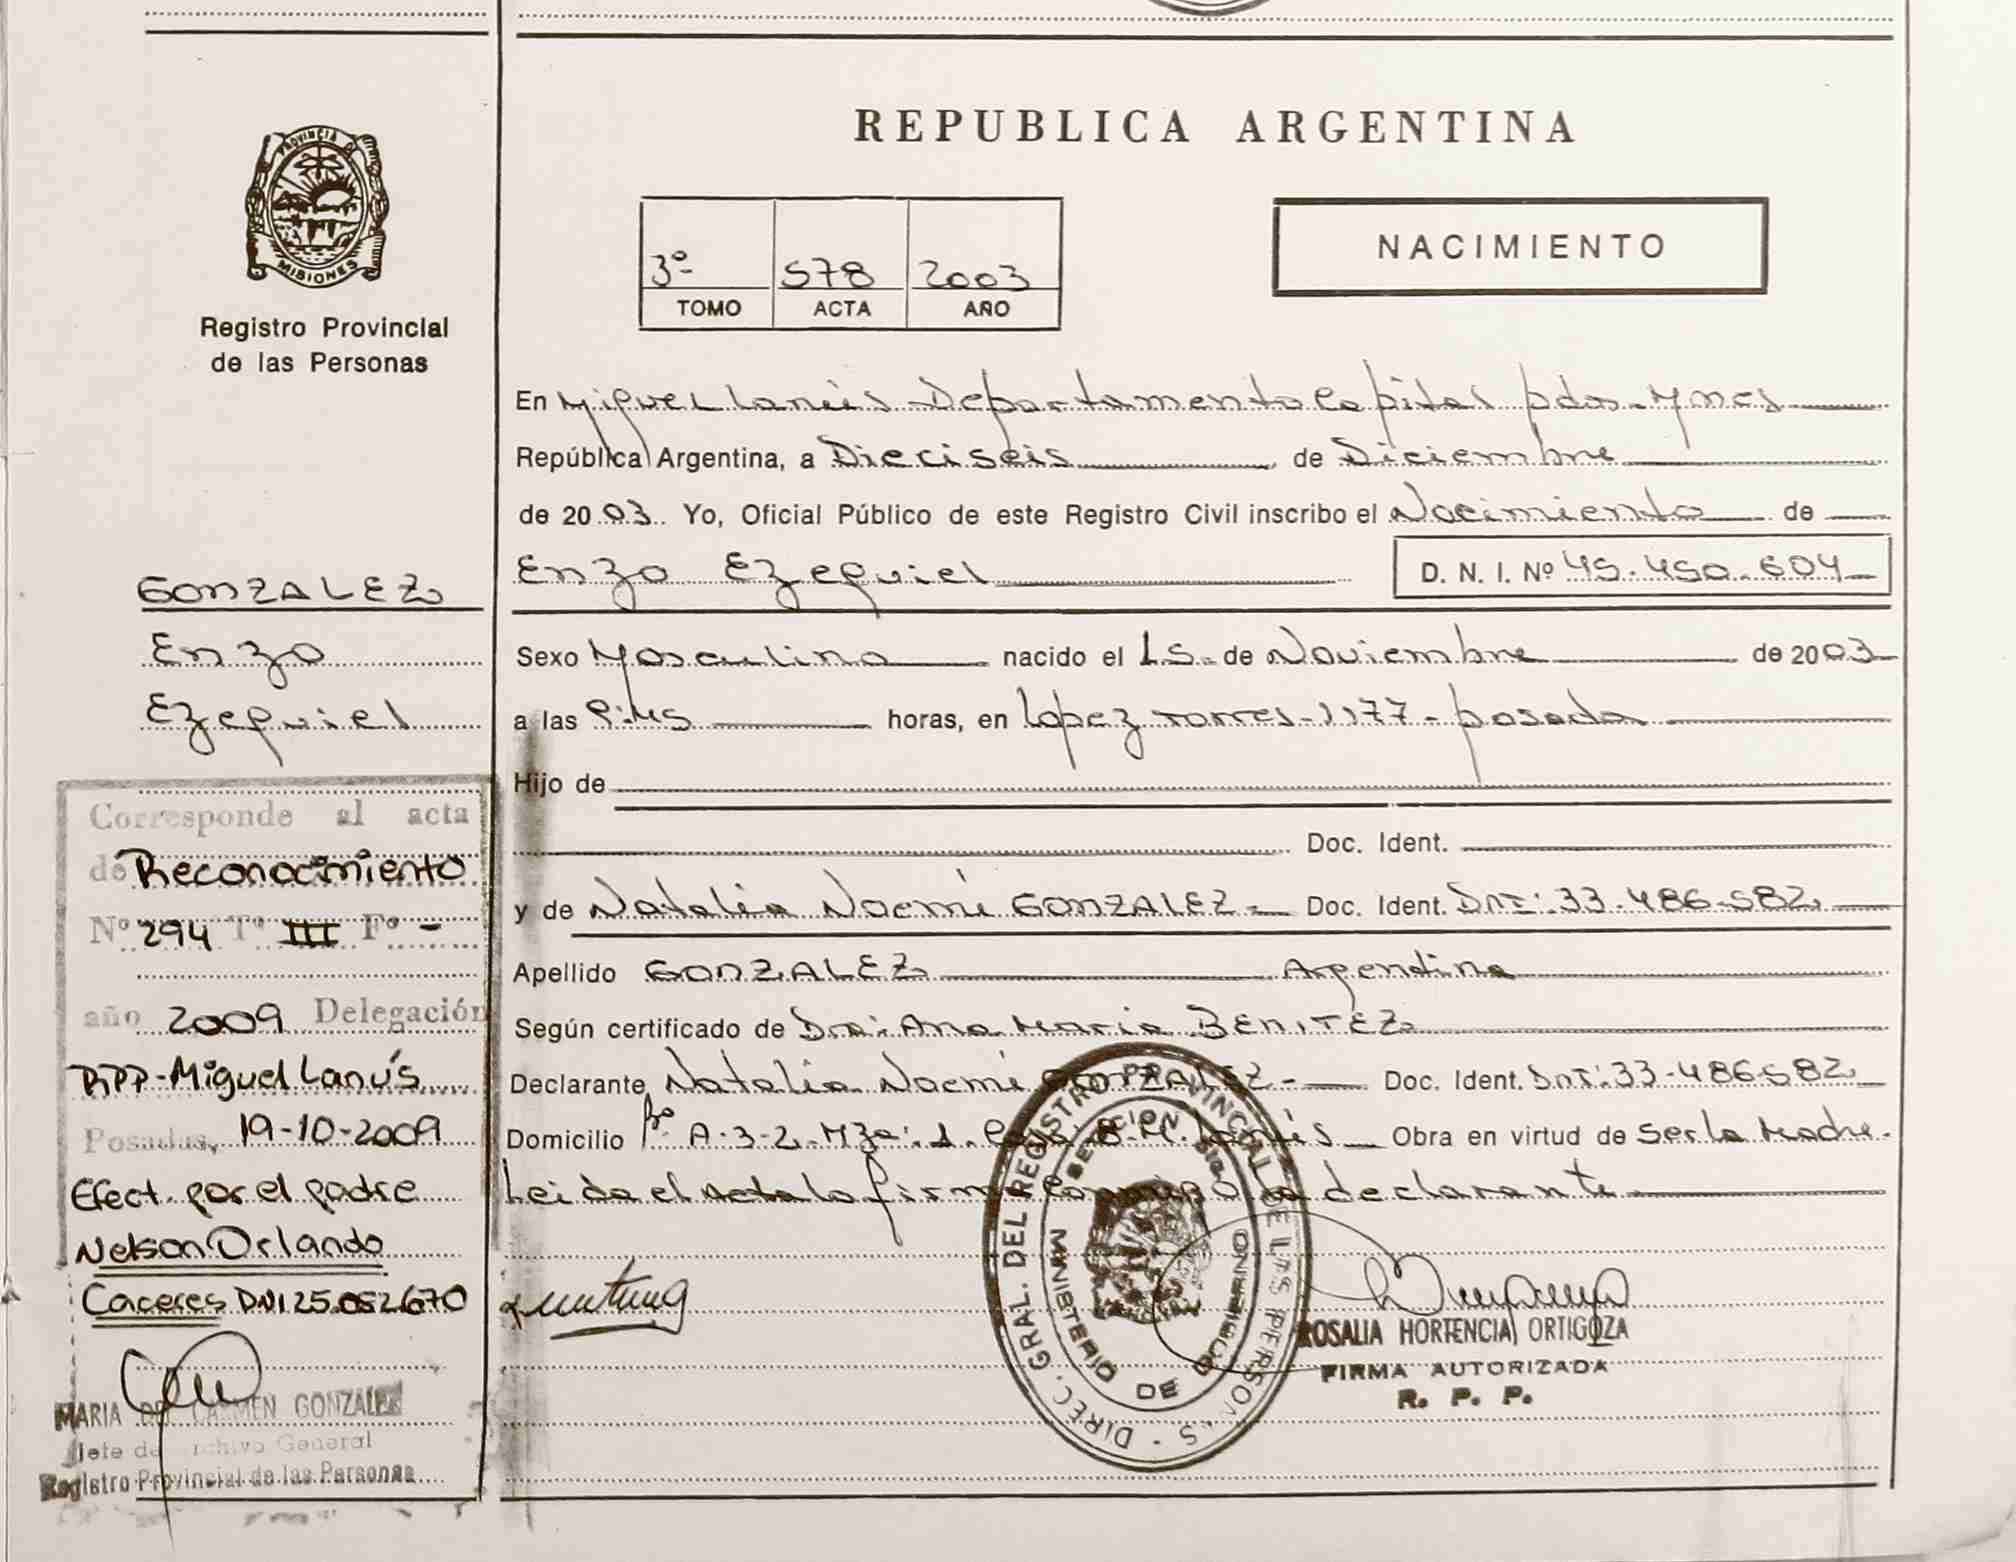 PROVINCIA DE
MISIONES
Registro Provincial
de las Personas
GONZALEZ
Enzo
Ezequiel
Corresponde al acta
de Reconocimiento
Nº 294 Tº III Fº -
año 2009 Delegación
RPP-Miguel Lanús
Posadas, 19-10-2009
Efect. por el padre
Nelson Orlando
Caceres DNI 25.052670
MARIA DEL CARMEN GONZALEZ
Jefe de Archivo General
Registro Provincial de las Personas
REPUBLICA ARGENTINA
3º 578 2003
TOMO ACTA AÑO
NACIMIENTO
En Miguel Lanús Departamento Capital pdas. Mnes
República Argentina, a Dieciseis de Diciembre
de 2003. Yo, Oficial Público de este Registro Civil inscribo el Nacimiento de
Enzo Ezequiel D. N. I. Nº 45.450.604
Sexo Masculino nacido el 15 de Noviembre de 2003
a las horas, en Lopez torres-1177-posadas
Hijo de
Doc. Ident.
y de Natalia Noemi GONZALEZ - Doc. Ident. DNI: 33.486.582
Apellido GONZALEZ Argentina
Según certificado de Dra: Ana Maria BENITEZ
Declarante Natalia Noemi GONZALEZ - Doc. Ident. DNI: 33-486582
Domicilio Bº A-3-2. Mza: 1. Casa 8-M. Lanús Obra en virtud de Ser la Madre.
Leida el acta la firma la declarante
DIREC. GRAL. DEL REGISTRO PROVINCIAL DE LAS PERSONAS
MINISTERIO DE GOBIERNO
ROSALIA HORTENCIA ORTIGOZA
FIRMA AUTORIZADA
R. P. P.